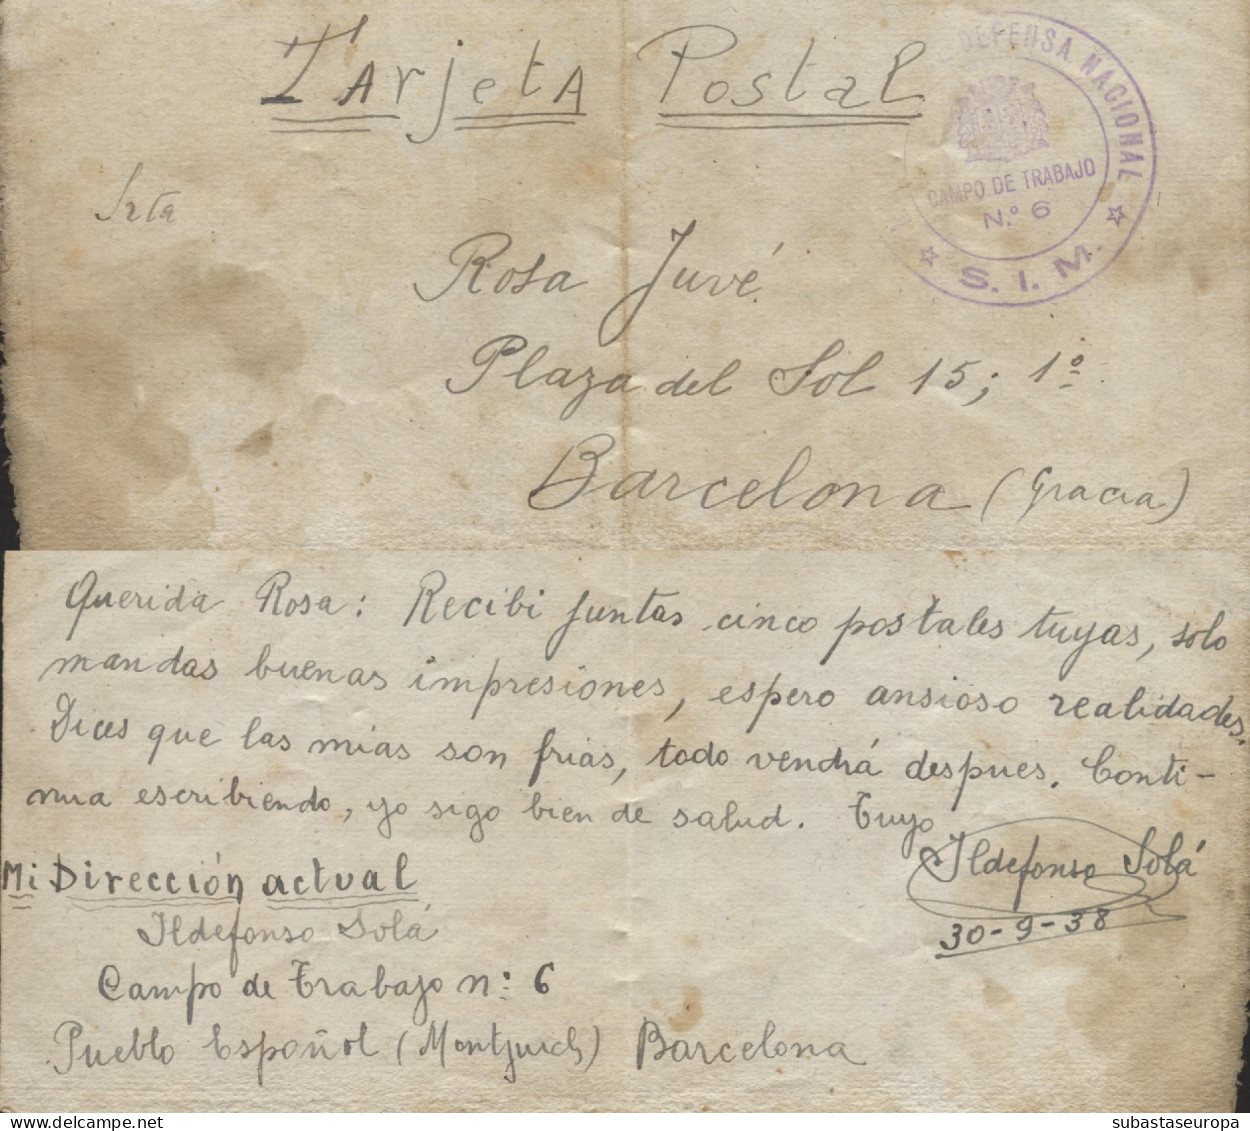 Tarjeta Postal
DEFENSA NACIONAL
CAMPO DE TRABAJO
N.º 6
S. I. M.
Srta
Rosa Juvé
Plaza del Sol 15; 1º
Barcelona (Gracia)
Querida Rosa: Recibi juntas cinco postales tuyas, solo
mandas buenas impresiones, espero ansioso realidades.
Dices que las mias son frias, todo vendrá despues. Conti-
nua escribiendo, yo sigo bien de salud. Tuyo
Ildefonso Solá
30-9-38
Mi Dirección actual
Ildefonso Solá
Campo de Trabajo nº 6
Pueblo Español (Montjuich) Barcelona
www.delcampe.net
subastaseuropa